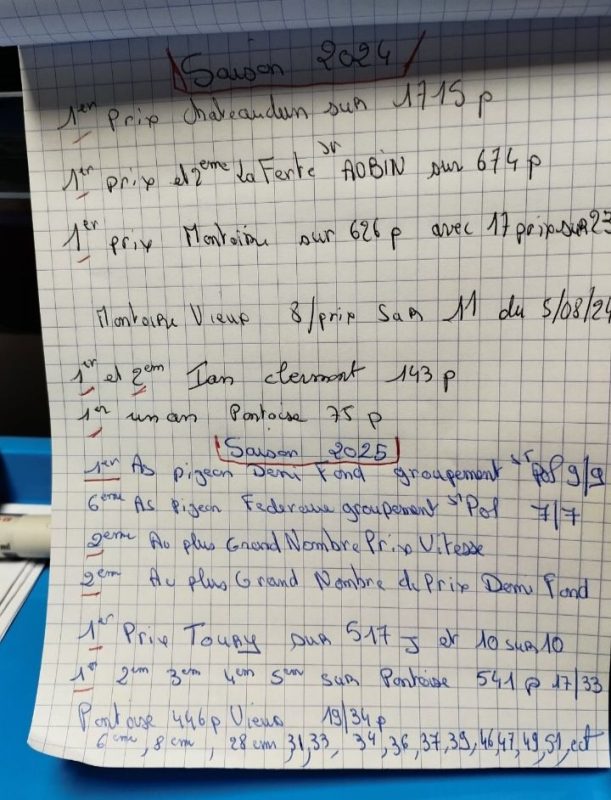 Saison 2024
1er Prix Chateaudun sur 1715 p
1er prix et 2eme La Ferte St AOBIN sur 674 p
1er prix Montoire sur 626 p avec 17 prix sur 23
Montoire Vieux 8/prix sur 11 du 5/08/24
1er et 2em 1an clermont 143 p
1er un an Pontoise 75 p
Saison 2025
1er As pigeon Demi Fond groupement St Pol 9/9
6eme As pigeon Federaux groupement St Pol 7/7
2eme Au plus Grand Nombre Prix Vitesse
2em Au plus Grand Nombre de Prix Demi Fond
1er Prix TOURY sur 517 J et 10 sur 10
1er 2em 3em 4em 5em sur Pontoise 541 p 17/33
Pontoise 446 p Vieux 19/34 p
6eme, 8em, 28em 31,33, 34,36,37,39,46,47,49,51, ect